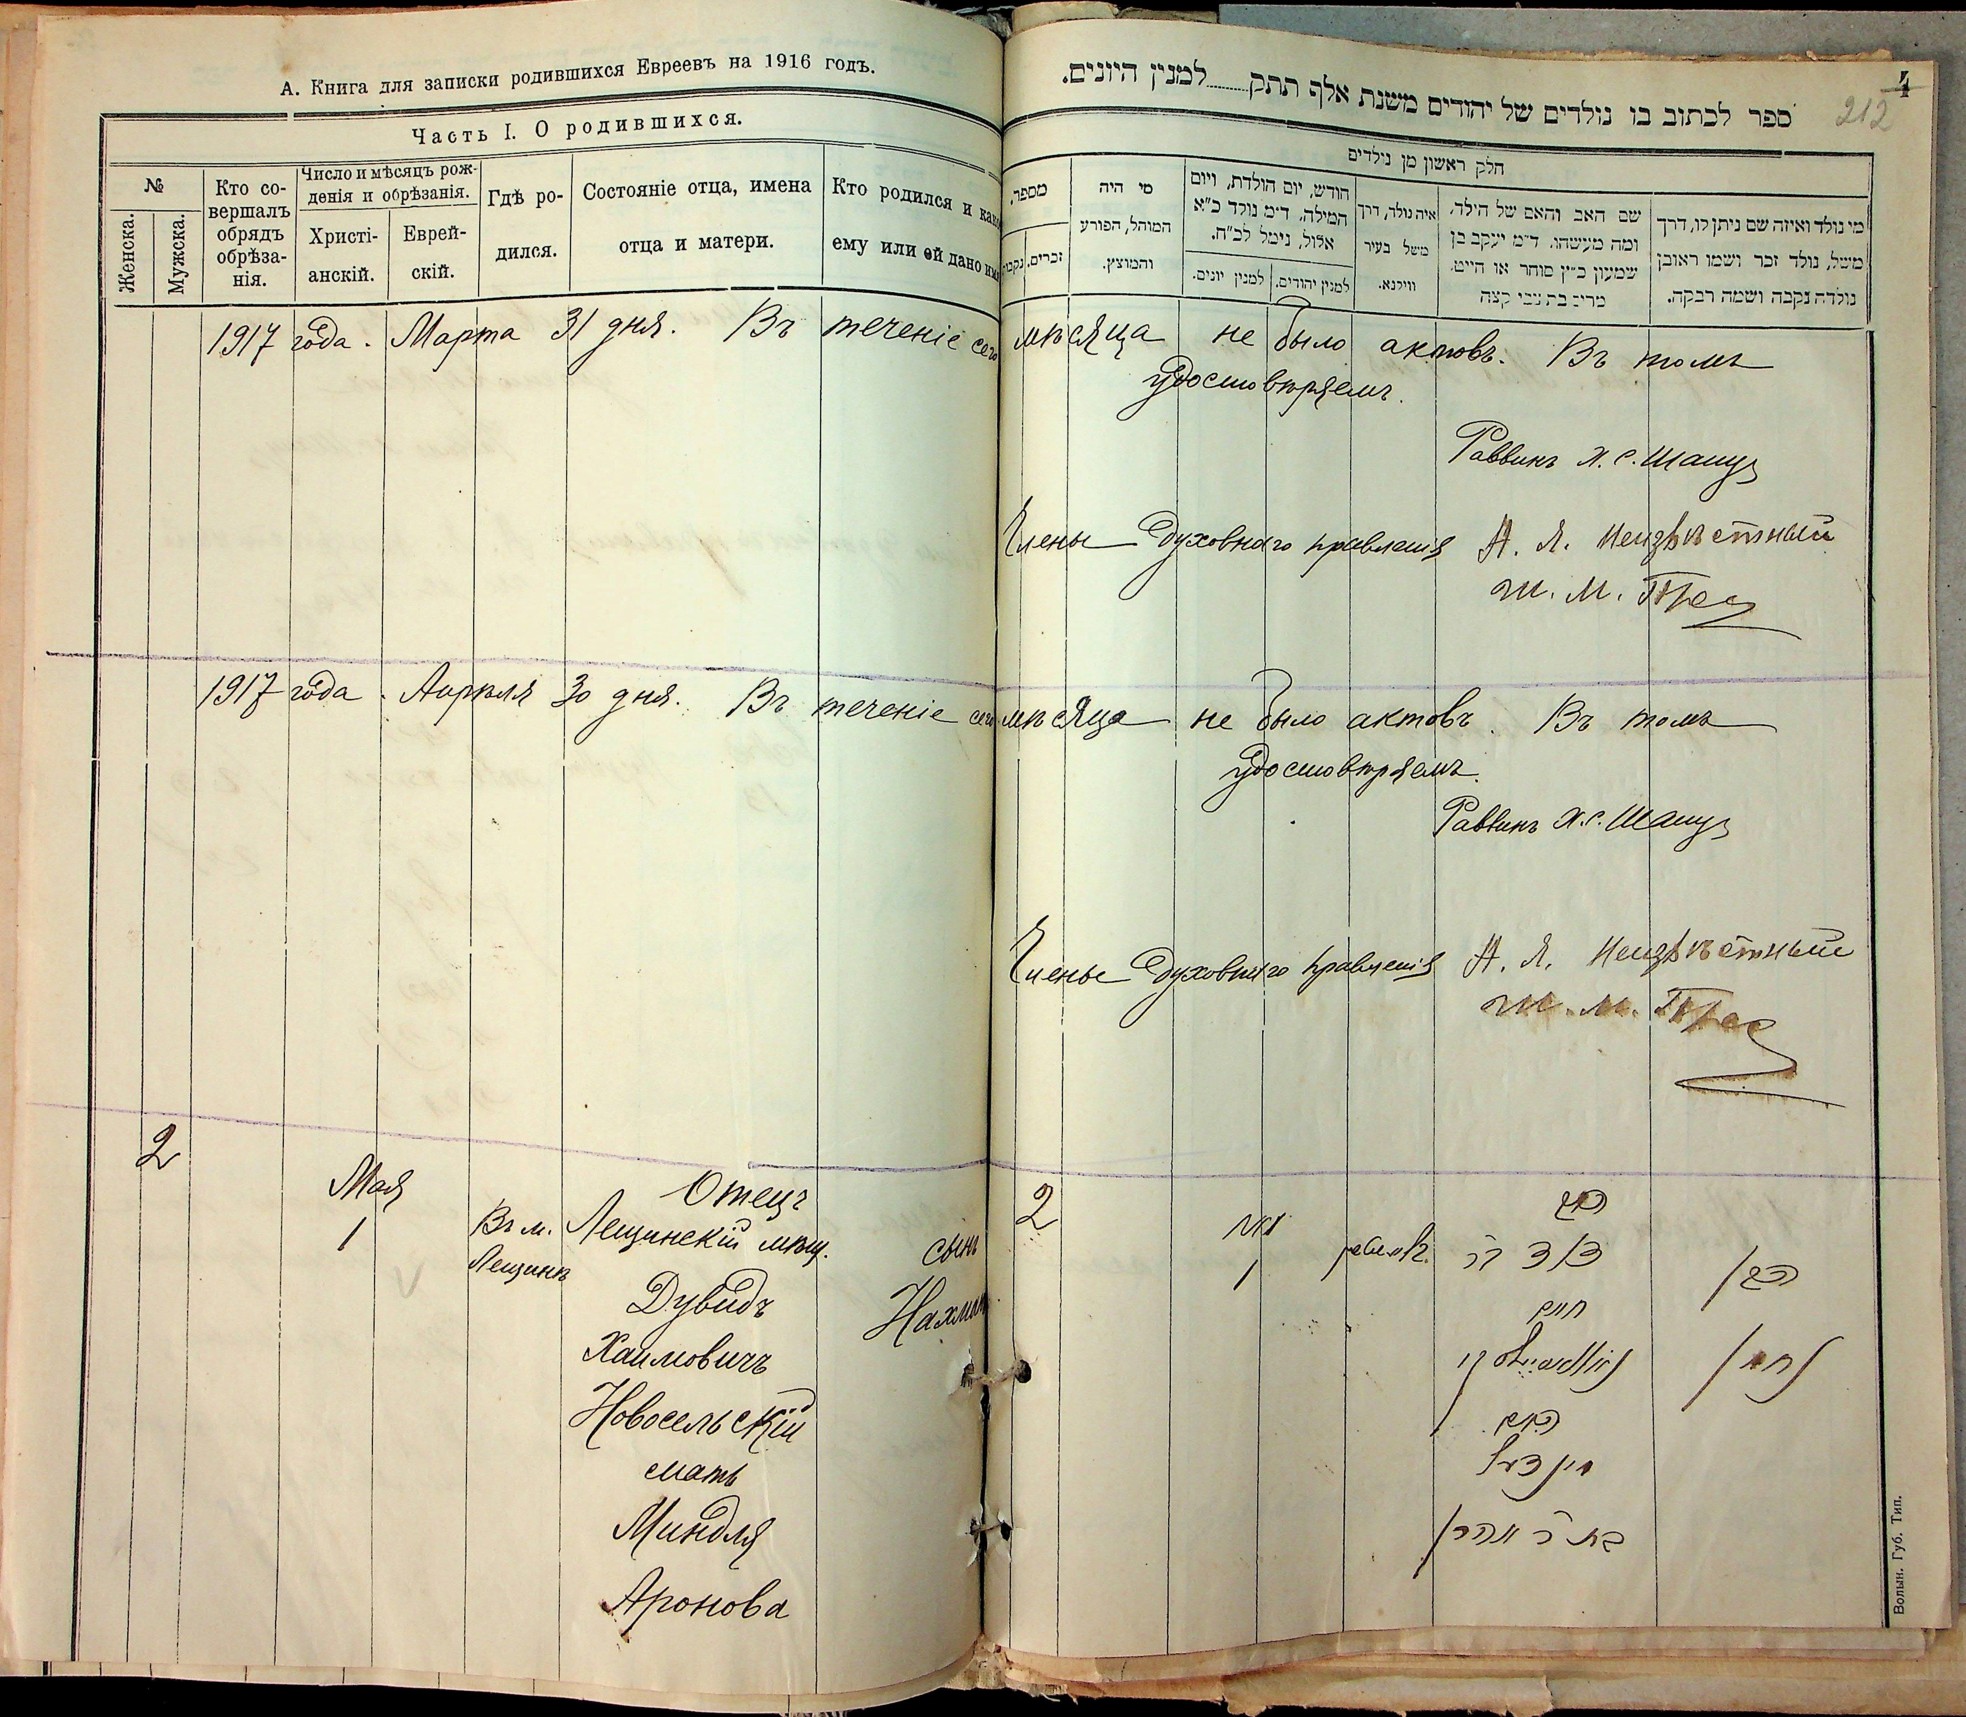 А. Книга для записки родившихся Евреевъ на 1916 годъ.
Часть I. О родившихся.
№
Женска.
Мужска.
Кто со-
вершалъ
обрядъ
обрѣза-
нія.
Число и мѣсяцъ рож-
денія и обрѣзанія.
Христі-
анскій.
Еврей-
скій.
Гдѣ ро-
дился.
Состояніе отца, имена
отца и матери.
Кто родился и како
ему или ей дано имя
1917 года. Марта 31 дня. Въ теченіе сего
1917 года. Апрѣля 30 дня. Въ теченіе сего
2
Мая
1
Въ м.
Лещинѣ
Отецъ
Лещинскій мѣщ.
Дувидъ
Хаимовичъ
Новосельскій
мать
Миндля
Аронова
сынъ
Нахманъ
ספר לכתוב בו נולדים של יהודים משנת אלף תתק למנין היונים.
4
212
חלק ראשון מן נולדים
מספר,
זכרים,
נקבות
מי היה
המוהל, הפורע
והמוצץ.
חודש, יום הולדת, ויום
המילה, ד״מ נולד כ״א
אלול, נימל לכ״ח.
למנין יונים.
למנין יהודים.
איה נולד, דרך
משל בעיר
ווילנא.
שם האב והאם של הילד,
ומה מעשהו, ד״מ יעקב בן
שמעון כ״ץ סוחר או חייט,
מרים בת צבי קצה
מי נולד ואיזה שם ניתן לו, דרך
משל, נולד זכר ושמו ראובן
נולדה נקבה ושמה רבקה.
мѣсяца не было актовъ. Въ томъ
удостовѣряемъ.
Раввинъ Х. С. Шапиръ
Члены Духовнаго правленія А. Я. Неизвѣстный
Ш. М.
мѣсяца не было актовъ. Въ томъ
удостовѣряемъ.
Раввинъ Х. С. Шапиръ
Члены Духовнаго правленія А. Я. Неизвѣстный
Ш. М.
2
מאי
1
האב
דוד בר
חיים
האם
מינדל
בת ר אהרן
הבן
נחמן
Волын. Губ. Тип.